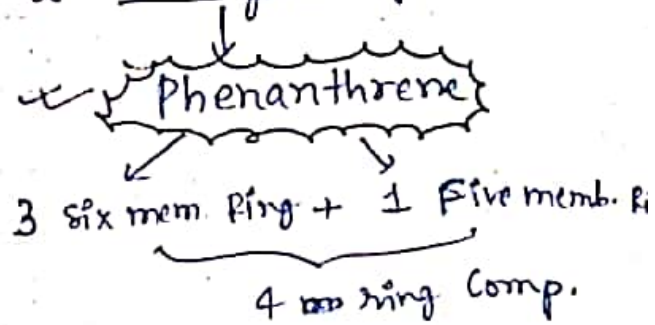 Phenanthrene
3 six mem. Ring + 1 Five memb.
4 ring Comp.